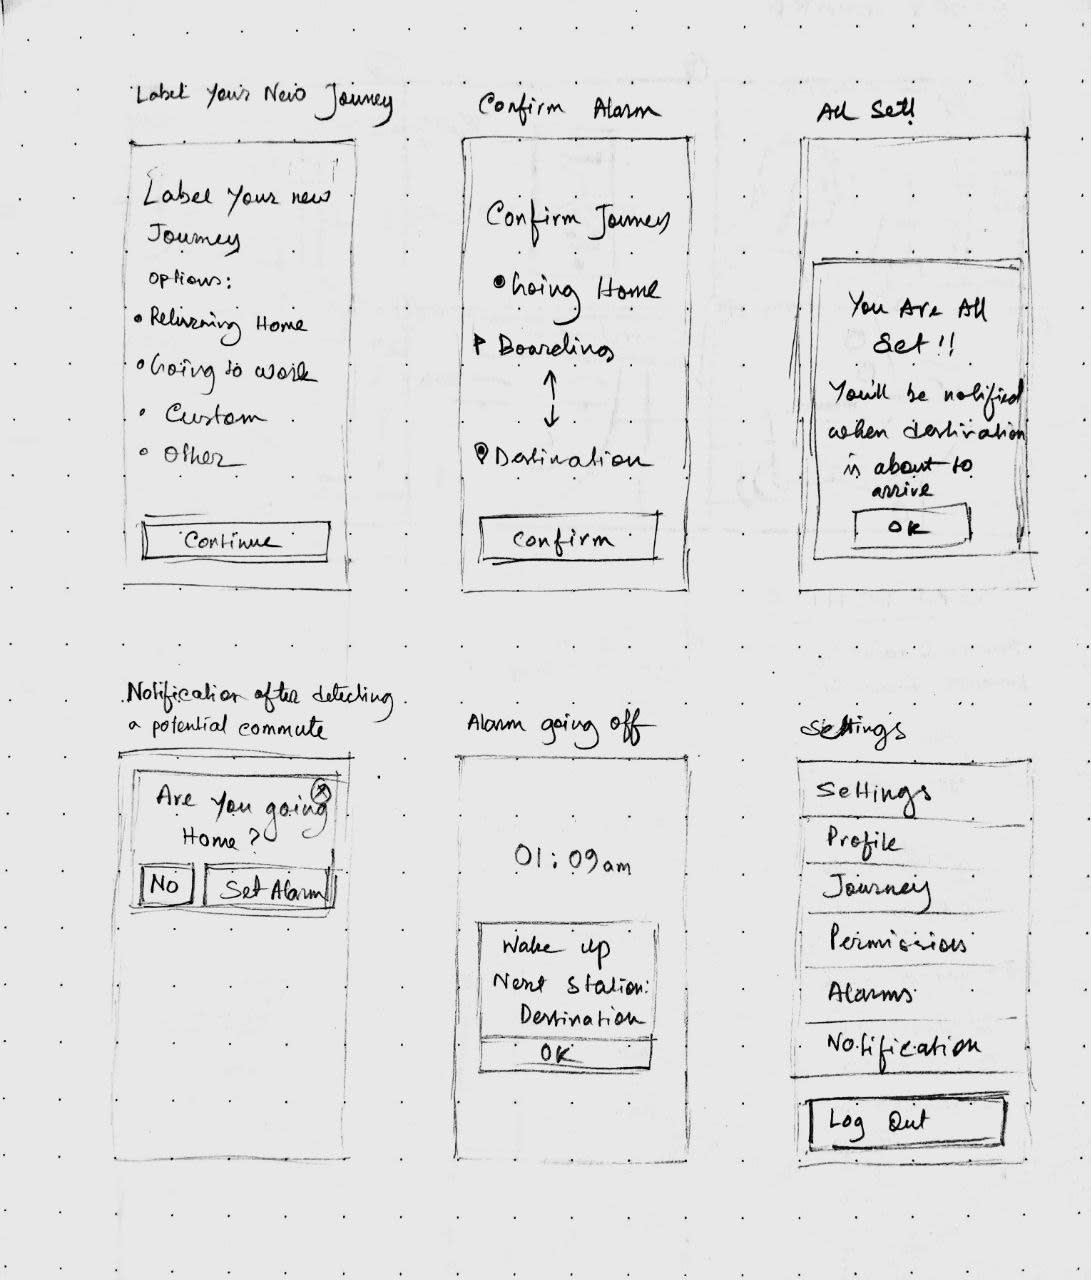 Label Your New Journey
Label Your new
Journey
options:
Returning Home
Going to work
Custom
Other
Continue
Confirm Alarm
Confirm Journey
Going Home
Boarding
Destination
Confirm
All Set!
You Are All
Set!!
You'll be notified
when destination
is about to
arrive
OK
Notification after detecting
a potential commute
Are You going
Home?
No
Set Alarm
Alarm going off
01:09am
Wake up
Next Station:
Destination
OK
Settings
Settings
Profile
Journey
Permissions
Alarms
Notification
Log Out